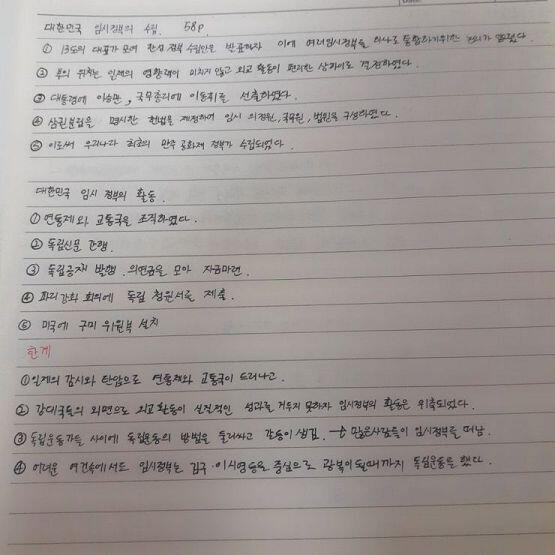 대한민국 임시정부의 수립 58p.
① 13도의 대표가 모여 한성 정부 수립안을 발표하자 이에 여러임시정부를 하나로 통합하기위한 논의가 열렸다.
② 부의 위치는 일제의 영향력이 미치지 않고 외교 활동이 편리한 상하이로 결정하였다.
③ 대통령에 이승만, 국무총리에 이동휘를 선출하였다.
④ 삼권분립을 명시한 헌법을 제정하여 임시 의정원, 국무원, 법원을 구성하였다.
⑤ 이로써 우리나라 최초의 민주 공화제 정부가 수립되었다.
대한민국 임시 정부의 활동
① 연통제와 교통국을 조직하였다.
② 독립신문 간행.
③ 독립공채 발행. 의연금을 모아 자금마련.
④ 파리 강화 회의에 독립 청원서를 제출.
⑤ 미국에 구미 위원부 설치
한계
① 일제의 감시와 탄압으로 연통제와 교통국이 드러나고.
② 강대국들의 외면으로 외교활동이 실질적인 성과를 거두지 못하자 임시정부의 활동은 위축되었다.
③ 독립운동가들 사이에 독립운동의 방법을 둘러싸고 갈등이 생김. → 많은사람들이 임시정부를 떠남.
④ 어려운 여건속에서도 임시정부는 김구·이시영등을 중심으로 광복이 될때까지 독립운동을 했다.